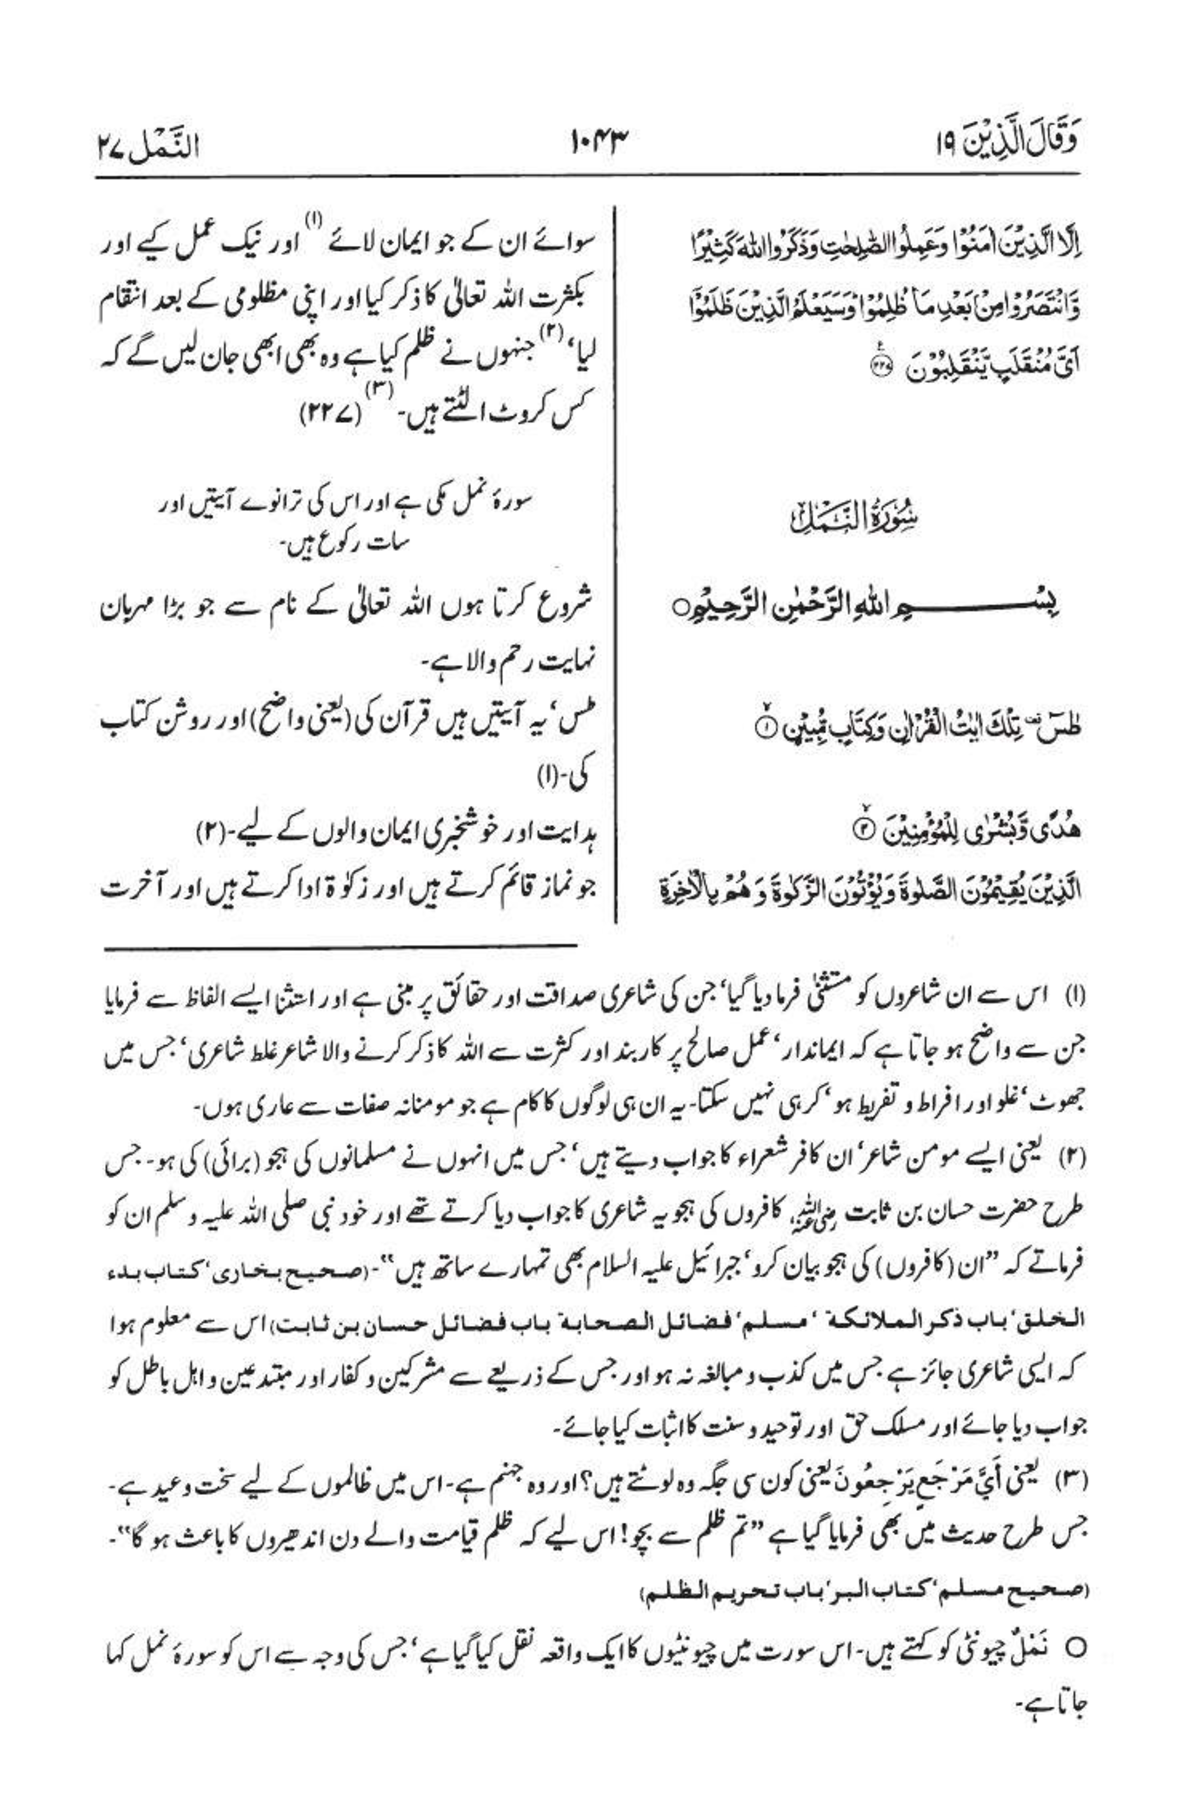 وَقَالَ الَّذِیْنَ ۱۹
۱۰۴۳
النَّمْل ۲۷
اِلَّا الَّذِیْنَ اٰمَنُوْا وَعَمِلُوا الصّٰلِحٰتِ وَذَکَرُوا اللهَ کَثِیْرًا
وَّانْتَصَرُوْا مِنْۢ بَعْدِ مَا ظُلِمُوْا ؕ وَسَیَعْلَمُ الَّذِیْنَ ظَلَمُوْۤا
اَیَّ مُنْقَلَبٍ یَّنْقَلِبُوْنَ ۝۲۲۷
سُوْرَۃُ النَّمْلِ
بِسْمِ اللهِ الرَّحْمٰنِ الرَّحِیْمِ ○
طٰسٓ ۟ تِلْکَ اٰیٰتُ الْقُرْاٰنِ وَکِتَابٍ مُّبِیْنٍ ۝۱
هُدًی وَّبُشْرٰی لِلْمُؤْمِنِیْنَ ۝۲
الَّذِیْنَ یُقِیْمُوْنَ الصَّلٰوۃَ وَیُؤْتُوْنَ الزَّکٰوۃَ وَهُمْ بِالْاٰخِرَۃِ
سوائے ان کے جو ایمان لائے (۱) اور نیک عمل کیے اور
بکثرت اللہ تعالیٰ کا ذکر کیا اور اپنی مظلومی کے بعد انتقام
لیا،(۲) جنہوں نے ظلم کیا ہے وہ بھی ابھی جان لیں گے کہ
کس کروٹ الٹتے ہیں۔(۳) (۲۲۷)
سورۂ نمل مکی ہے اور اس کی ترانوے آیتیں اور
سات رکوع ہیں۔
شروع کرتا ہوں اللہ تعالیٰ کے نام سے جو بڑا مہربان
نہایت رحم والا ہے۔
طٰس، یہ آیتیں ہیں قرآن کی (یعنی واضح) اور روشن کتاب
کی۔(۱)
ہدایت اور خوشخبری ایمان والوں کے لیے۔(۲)
جو نماز قائم کرتے ہیں اور زکوٰۃ ادا کرتے ہیں اور آخرت
(۱) اس سے ان شاعروں کو مستثنیٰ فرما دیا گیا، جن کی شاعری صداقت اور حقائق پر مبنی ہے اور استثنا ایسے الفاظ سے فرمایا
جن سے واضح ہو جاتا ہے کہ ایماندار، عمل صالح پر کاربند اور کثرت سے اللہ کا ذکر کرنے والا شاعر غلط شاعری، جس میں
جھوٹ، غلو اور افراط و تفریط ہو، کر ہی نہیں سکتا۔ یہ ان ہی لوگوں کا کام ہے جو مومنانہ صفات سے عاری ہوں۔
(۲) یعنی ایسے مومن شاعر، ان کافر شعراء کا جواب دیتے ہیں، جس میں انہوں نے مسلمانوں کی ہجو (برائی) کی ہو۔ جس
طرح حضرت حسان بن ثابت رضی اللہ عنہ، کافروں کی ہجویہ شاعری کا جواب دیا کرتے تھے اور خود نبی صلی اللہ علیہ وسلم ان کو
فرماتے کہ ”ان (کافروں) کی ہجو بیان کرو، جبرائیل علیہ السلام بھی تمہارے ساتھ ہیں“۔ (صحیح بخاری، کتاب بدء
الخلق، باب ذکر الملائکۃ، مسلم، فضائل الصحابۃ باب فضائل حسان بن ثابت) اس سے معلوم ہوا
کہ ایسی شاعری جائز ہے جس میں کذب و مبالغہ نہ ہو اور جس کے ذریعے سے مشرکین و کفار اور مبتدعین و اہل باطل کو
جواب دیا جائے اور مسلک حق اور توحید و سنت کا اثبات کیا جائے۔
(۳) یعنی أَيَّ مَرْجَعٍ يَرْجِعُونَ یعنی کون سی جگہ وہ لوٹتے ہیں؟ اور وہ جہنم ہے۔ اس میں ظالموں کے لیے سخت وعید ہے۔
جس طرح حدیث میں بھی فرمایا گیا ہے ”تم ظلم سے بچو! اس لیے کہ ظلم قیامت والے دن اندھیروں کا باعث ہو گا“۔
(صحیح مسلم، کتاب البر، باب تحریم الظلم)
○ نَمْلٌ چیونٹی کو کہتے ہیں۔ اس سورت میں چیونٹیوں کا ایک واقعہ نقل کیا گیا ہے، جس کی وجہ سے اس کو سورۂ نمل کہا
جاتا ہے۔